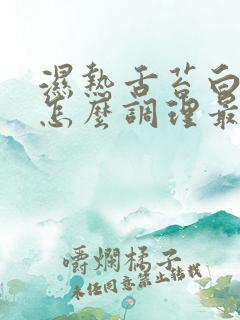 濕熱舌苔白
怎麼調理最
嚼爛橘子
未經同意禁止轉載